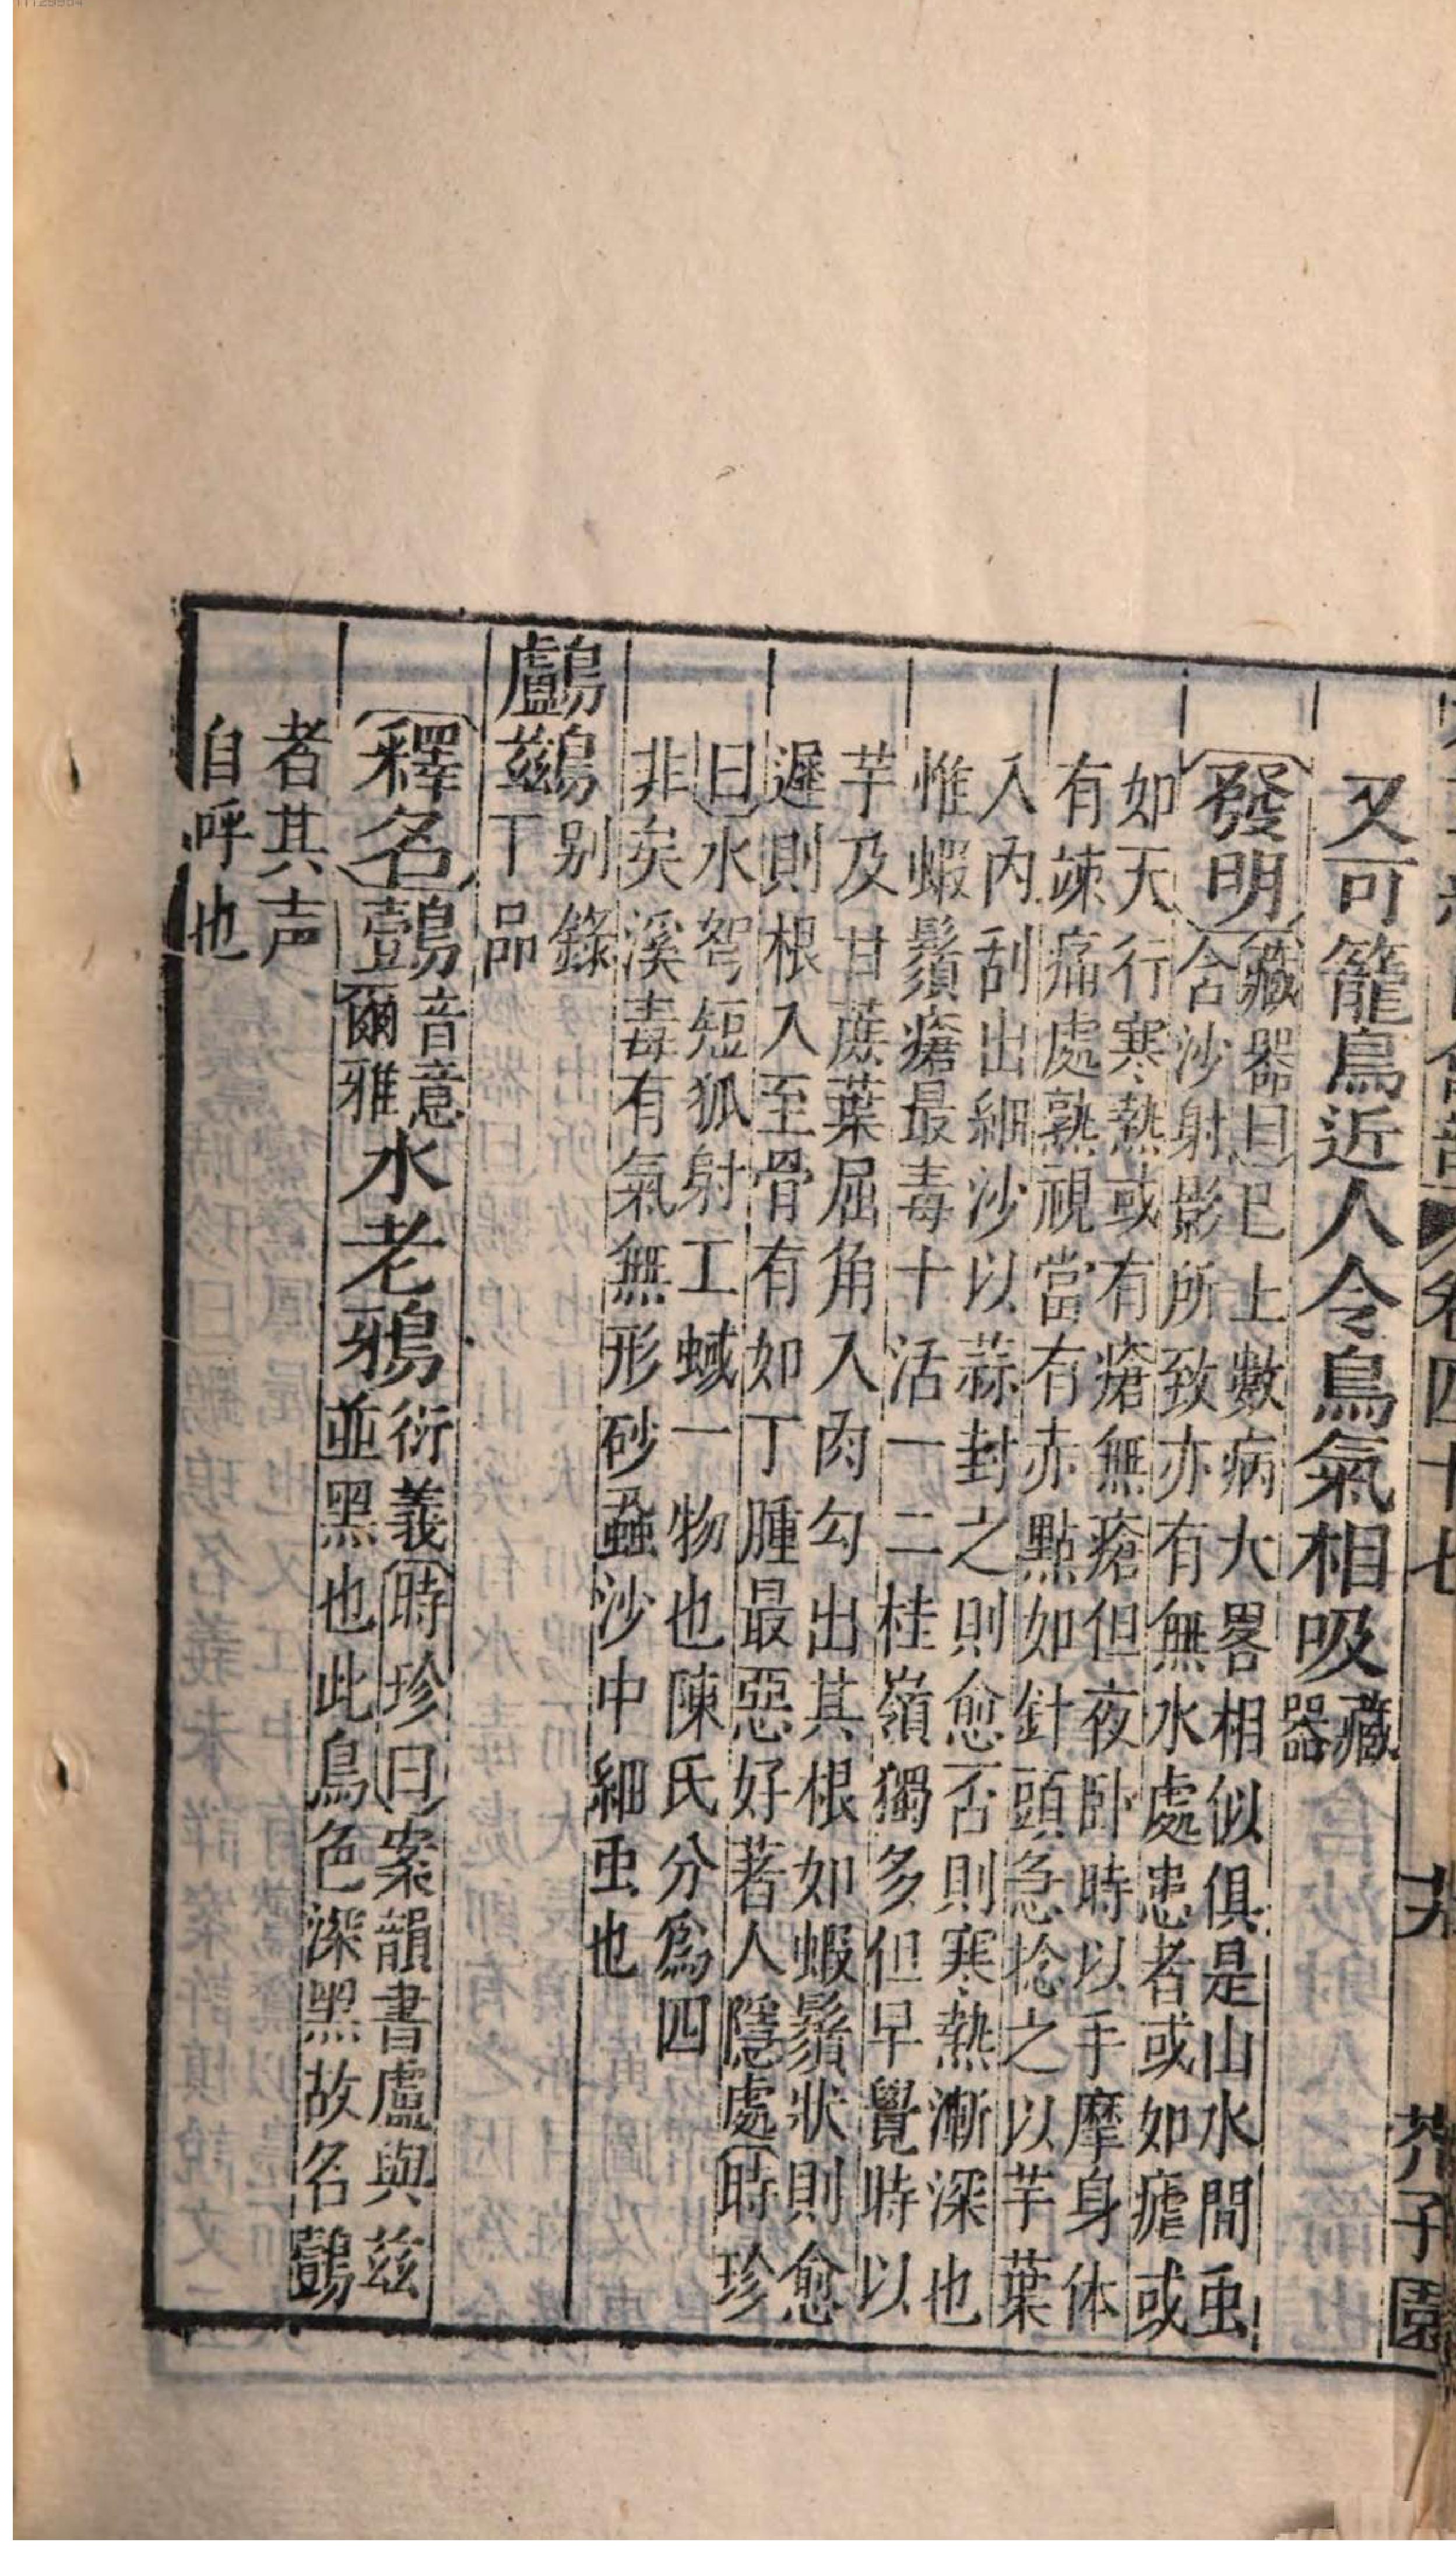 卷四十七
芥子園
又可籠鳥近人令鳥氣相吸藏
器
發明藏器曰已上數病大畧相似俱是山水間虫
含沙射影所致亦有無水處患者或如瘧或
如天行寒熱或有瘡無瘡但夜卧時以手摩身体
有䟽痛處熟視當有赤點如針頭急捻之以芋葉
入內刮出細沙以蒜封之則愈否則寒熱漸深也
惟蝦鬚瘡最毒十活一二桂嶺獨多但早覺時以
芋及甘蔗葉屈角入肉勾出其根如蝦鬚狀則愈
遲則根入至骨有如丁腫最惡好著人隱處時珍
曰水弩短狐射工蜮一物也陳氏分爲四
非矣溪毒有氣無形砂蝨沙中細虫也
鸕鷀别錄
下品
釋名鷧音意
爾雅水老鴉衍義時珍曰案韻書盧與茲
並黑也此鳥色深黑故名鷧
者其声
自呼也